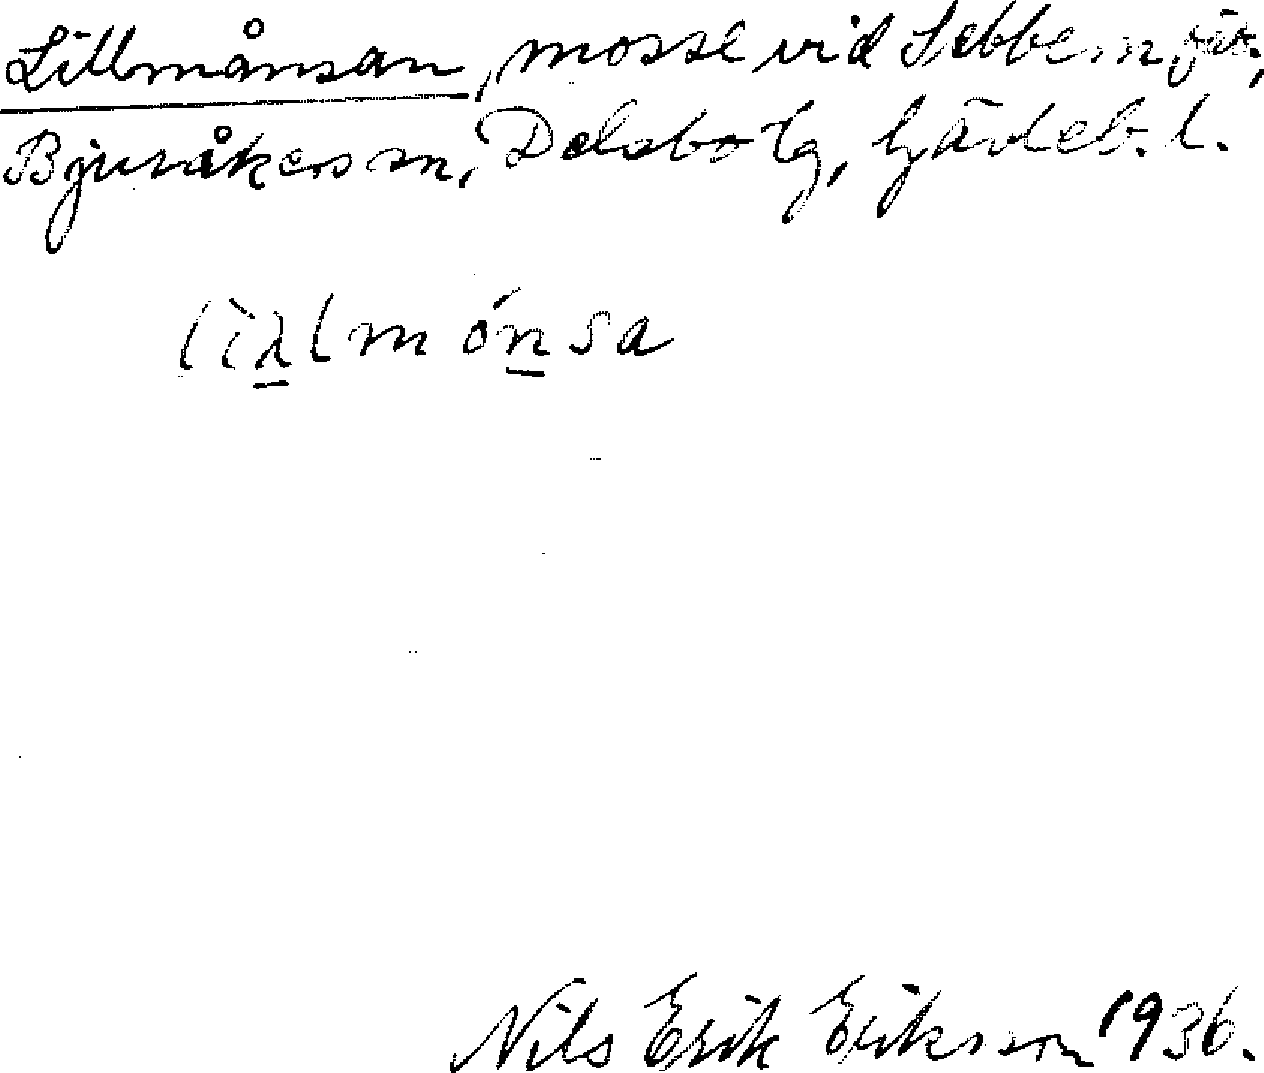 Lillmånsan, mosse vid Sebbem
Bjuråkers sn, Delsbo tg, Gävleb. l.
Nils Erik Eriksson 1936.